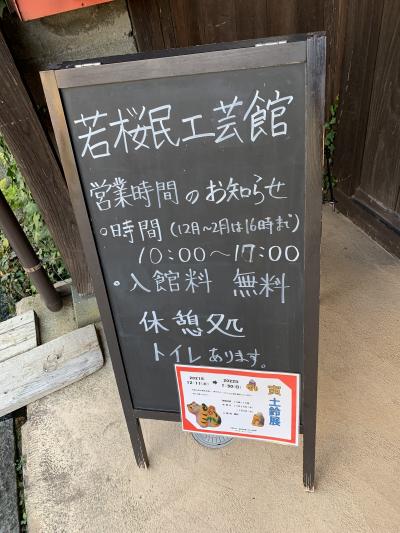 若桜民工芸館
営業時間のお知らせ
・時間(12月〜2月は16時まで)
10:00〜17:00
・入館料 無料
休憩処
トイレあります。
寅土鈴展